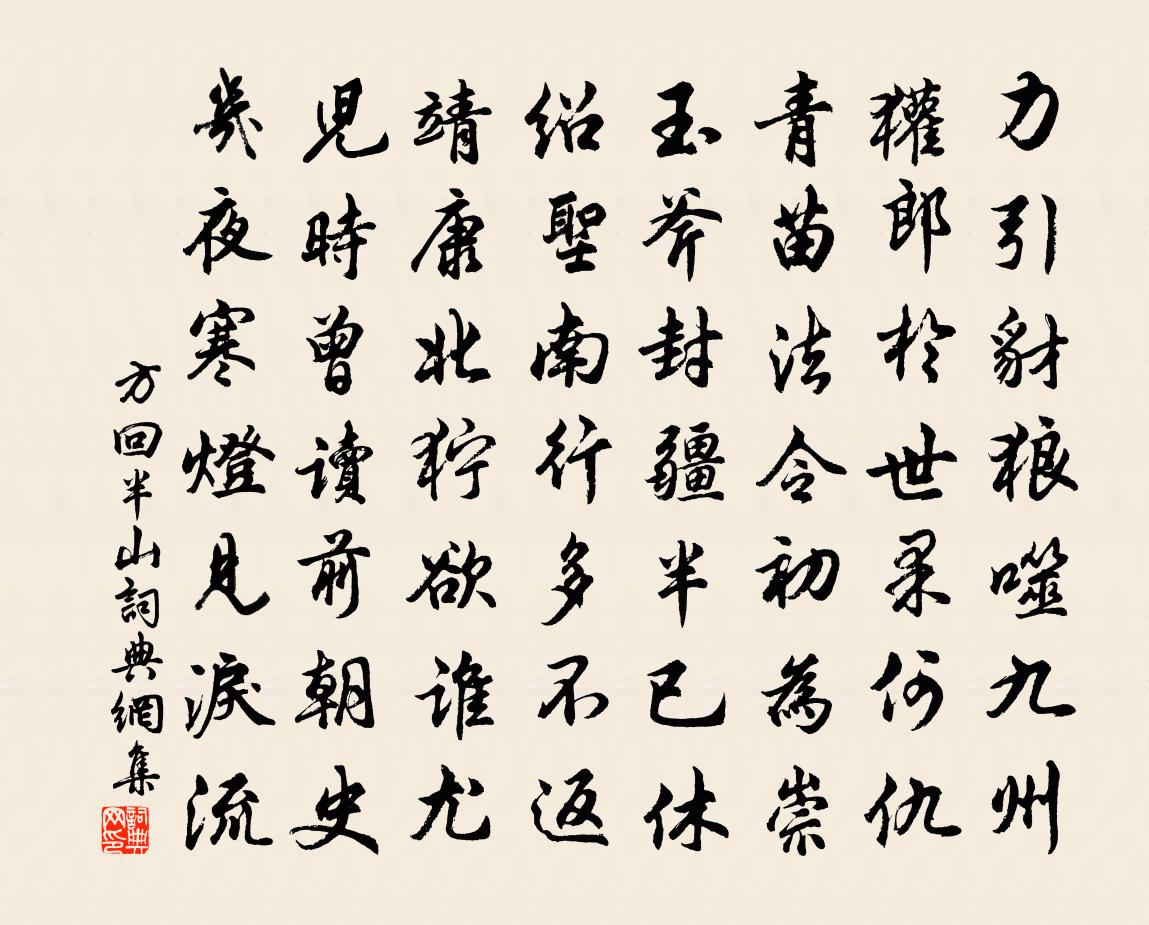 力引豺狼噬九州
獾郎於世果何仇
青苗法令初為崇
玉斧封疆半已休
紹聖南行多不返
靖康北狩欲誰尤
児時曾讀前朝史
幾夜寒燈見淚流
方回半山詞典網集
詞典網印